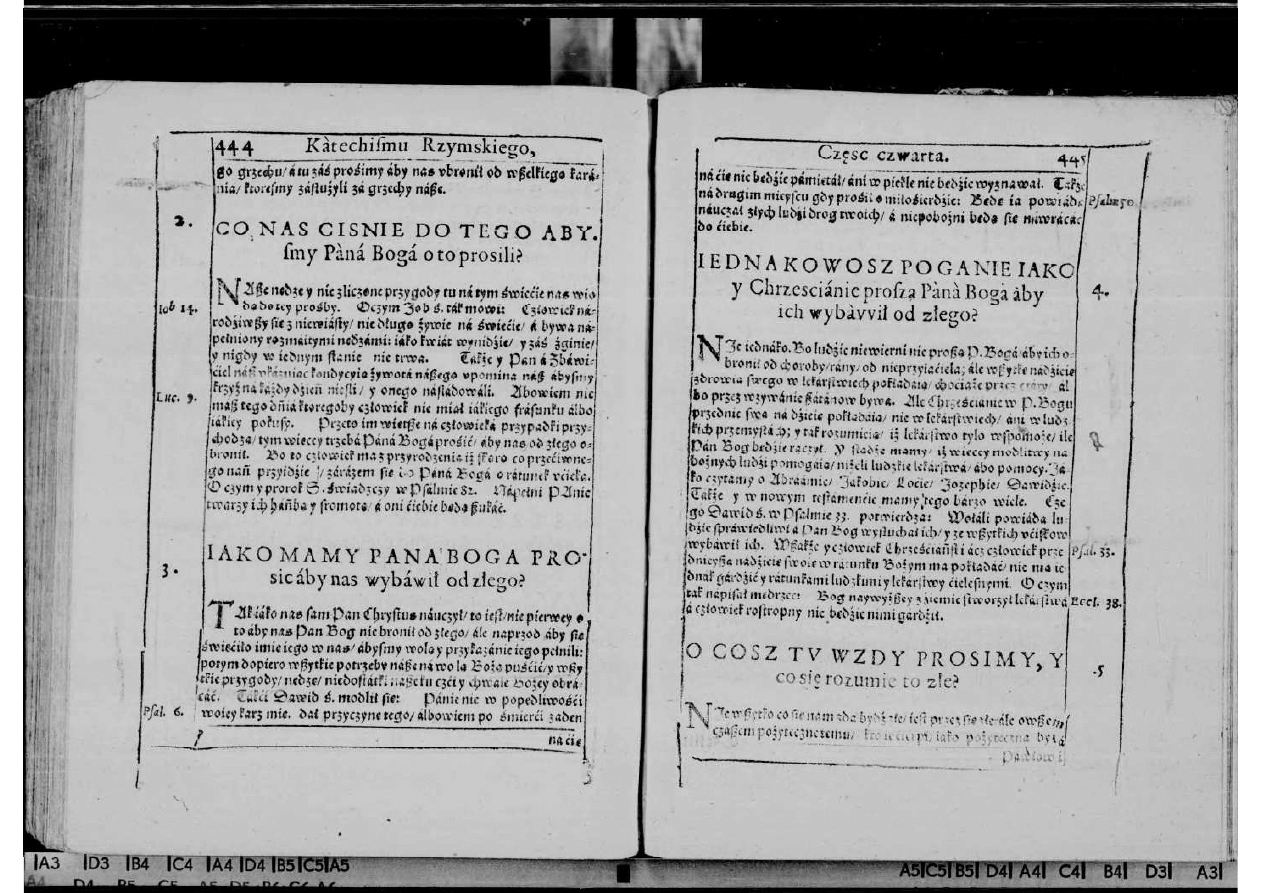 444 Kàtechiſmu Rzymskiego,
go grzechu/ á tu záś prośimy áby nas vbronił od wßelkiego kará-
nia/ ktoreſmy záſłużyli zá grzechy náße.
2.
CO NAS CISNIE DO TEGO ABY.
ſmy Pàná Bogá o to prosili?
NAße nedze y nie zliczone przygody tu ná tym świećie nas wio
da do tey prośby. O czym Job ś. ták mowi: Człowiek ná-
Iob 14.
rodźiwßy sie z niewiásty/ nie długo żywie ná świećie/ á bywa ná-
pełniony rozmáitymi nedzámi: iáko kwiát wynidźie/ y záś zginie/
y nigdy w iednym stanie nie trwa. Tákże y Pan á Zbáwi-
ćiel náß vkázuiac kondycyia żywotá náßego vpomina náß ábyſmy
krzyż ná káżdy dźień nieśli/ y onego náśládowáli. Abowiem nie
Luc. 9.
máß tego dńia ktoregoby człowiek nie miał iákiego fráſunku álbo
iákiey pokuſy. Przeto im wietße ná człowieká przypadki przy-
chodza/ tym wiecey trzebá Páná Bogá prośić/ áby nas od złego o-
bronił. Bo to człowiek ma z przyrodzenia iż skoro co przećiwne-
go nań przyidźie / zárázem sie do Páná Bogá o rátunek vćieka.
O czym y prorok S. świádczy w Psálmie 82. Nápełni PAnie
twarzy ich háńba y sromota/ á oni ćiebie beda ßukáć.
3.
IAKO MAMY PANA BOGA PRO-
sic áby nas wybáwił od złego?
TAk iáko nas sam Pan Chryſtus náuczył/ to iest/ nie pierwey o
to áby nas Pan Bog nie bronił od złego/ ále naprzod áby sie
święćiło imie iego w nas/ ábyſmy wolą y przykazánie iego pełnili:
potym dopiero wßytkie potrzeby náße ná wolą Boża puśćić/ y wßy
tkie przygody/ nedze/ niedostátki náße ku czći y chwale Bożey obrá-
cáć. Tákći Dawid ś. modlił sie: Pánie nie w popedliwośći
Pſal. 6.
twoiey karz mie. dał przyczyne tego/ álbowiem po śmierći żaden
na cie
Częsc czwarta. 445
ná ćie nie bedźie pámietał/ áni w piekle nie bedźie wyznawał. Tákże
ná drugim mieyscu gdy prośił o miłośierdźie: Bede ia powiádał
Pſalm 50.
náuczał złych ludźi drog twoich/ á niepobożni beda sie náwrácáć
do ćiebie.
IEDNAKOWOSZ POGANIE IAKO
4.
y Chrzesciánie proſzą Pànà Bogà àby
ich wybáwił od złego?
NJe iednáko. Bo ludźie niewierni nie proßa P. Bogá/ áby ich o-
bronił od choroby/ rány/ od nieprzyiaćielá; ále wßytkę nádźieie
zdrowia swego w lekárstwiech pokłádáia/ choćiaże przez czáry/ ál
bo przez wzywánie ßátánow bywa. Ale Chrześćiánie w P. Bogu
przednie swa nádźieie pokłádáia/ nie w lekárstwiech/ áni w ludz
kich przemysłách; y ták rozumieia/ iż lekárstwo tylo wspomoże/ ile
Pan Bog bedźie raczył. Y stądże mamy/ iż wiecey modlitwy ná
bożnych ludźi pomogáia/ niżeli ludzkie lekárstwá/ ábo pomocy. Já-
ko czytamy o Abráámie/ Jákobie/ Loćie/ Jozephie/ Dáwidźie.
Tákże y w nowym testámenćie mamy tego bárzo wiele. Cze
go Dawid ś. w Psalmie 33. potwierdza: Wołáli powiáda lu-
dźie spráwiedliwi á Pan Bog wysłuchał ich/ y ze wßytkich vćiskow
wybáwił ich. Wßákże y człowiek Chrześćiáński ácz człowiek prze
Pſal. 33.
dnieyßa nádźieie swoie w rátunku Bożym ma pokłádáć/ nie ma ie
dnák gárdźić y rátunkámi ludzkimi y lekárstwy ćielesnymi. O czym
ták nápisał medrzec: Bog naywyżßy z źiemie stworzył lekárstwá
Eccl. 38.
á człowiek rostropny nie bedźie nimi gárdźił.
O COSZ TV WZDY PROSIMY, Y
.5
co się rozumie to złe?
NJe wßytko co sie nam zda bydź złe/ iest przez sie złe/ ále owßem
czáßem pożyteczne temu/ kto ie ćierpi/ iáko pożyteczna byłá
Páwłowi
A3 D3 B4 C4 A4 D4 B5 C5 A5
A5 C5 B5 D4 A4 C4 B4 D3 A3